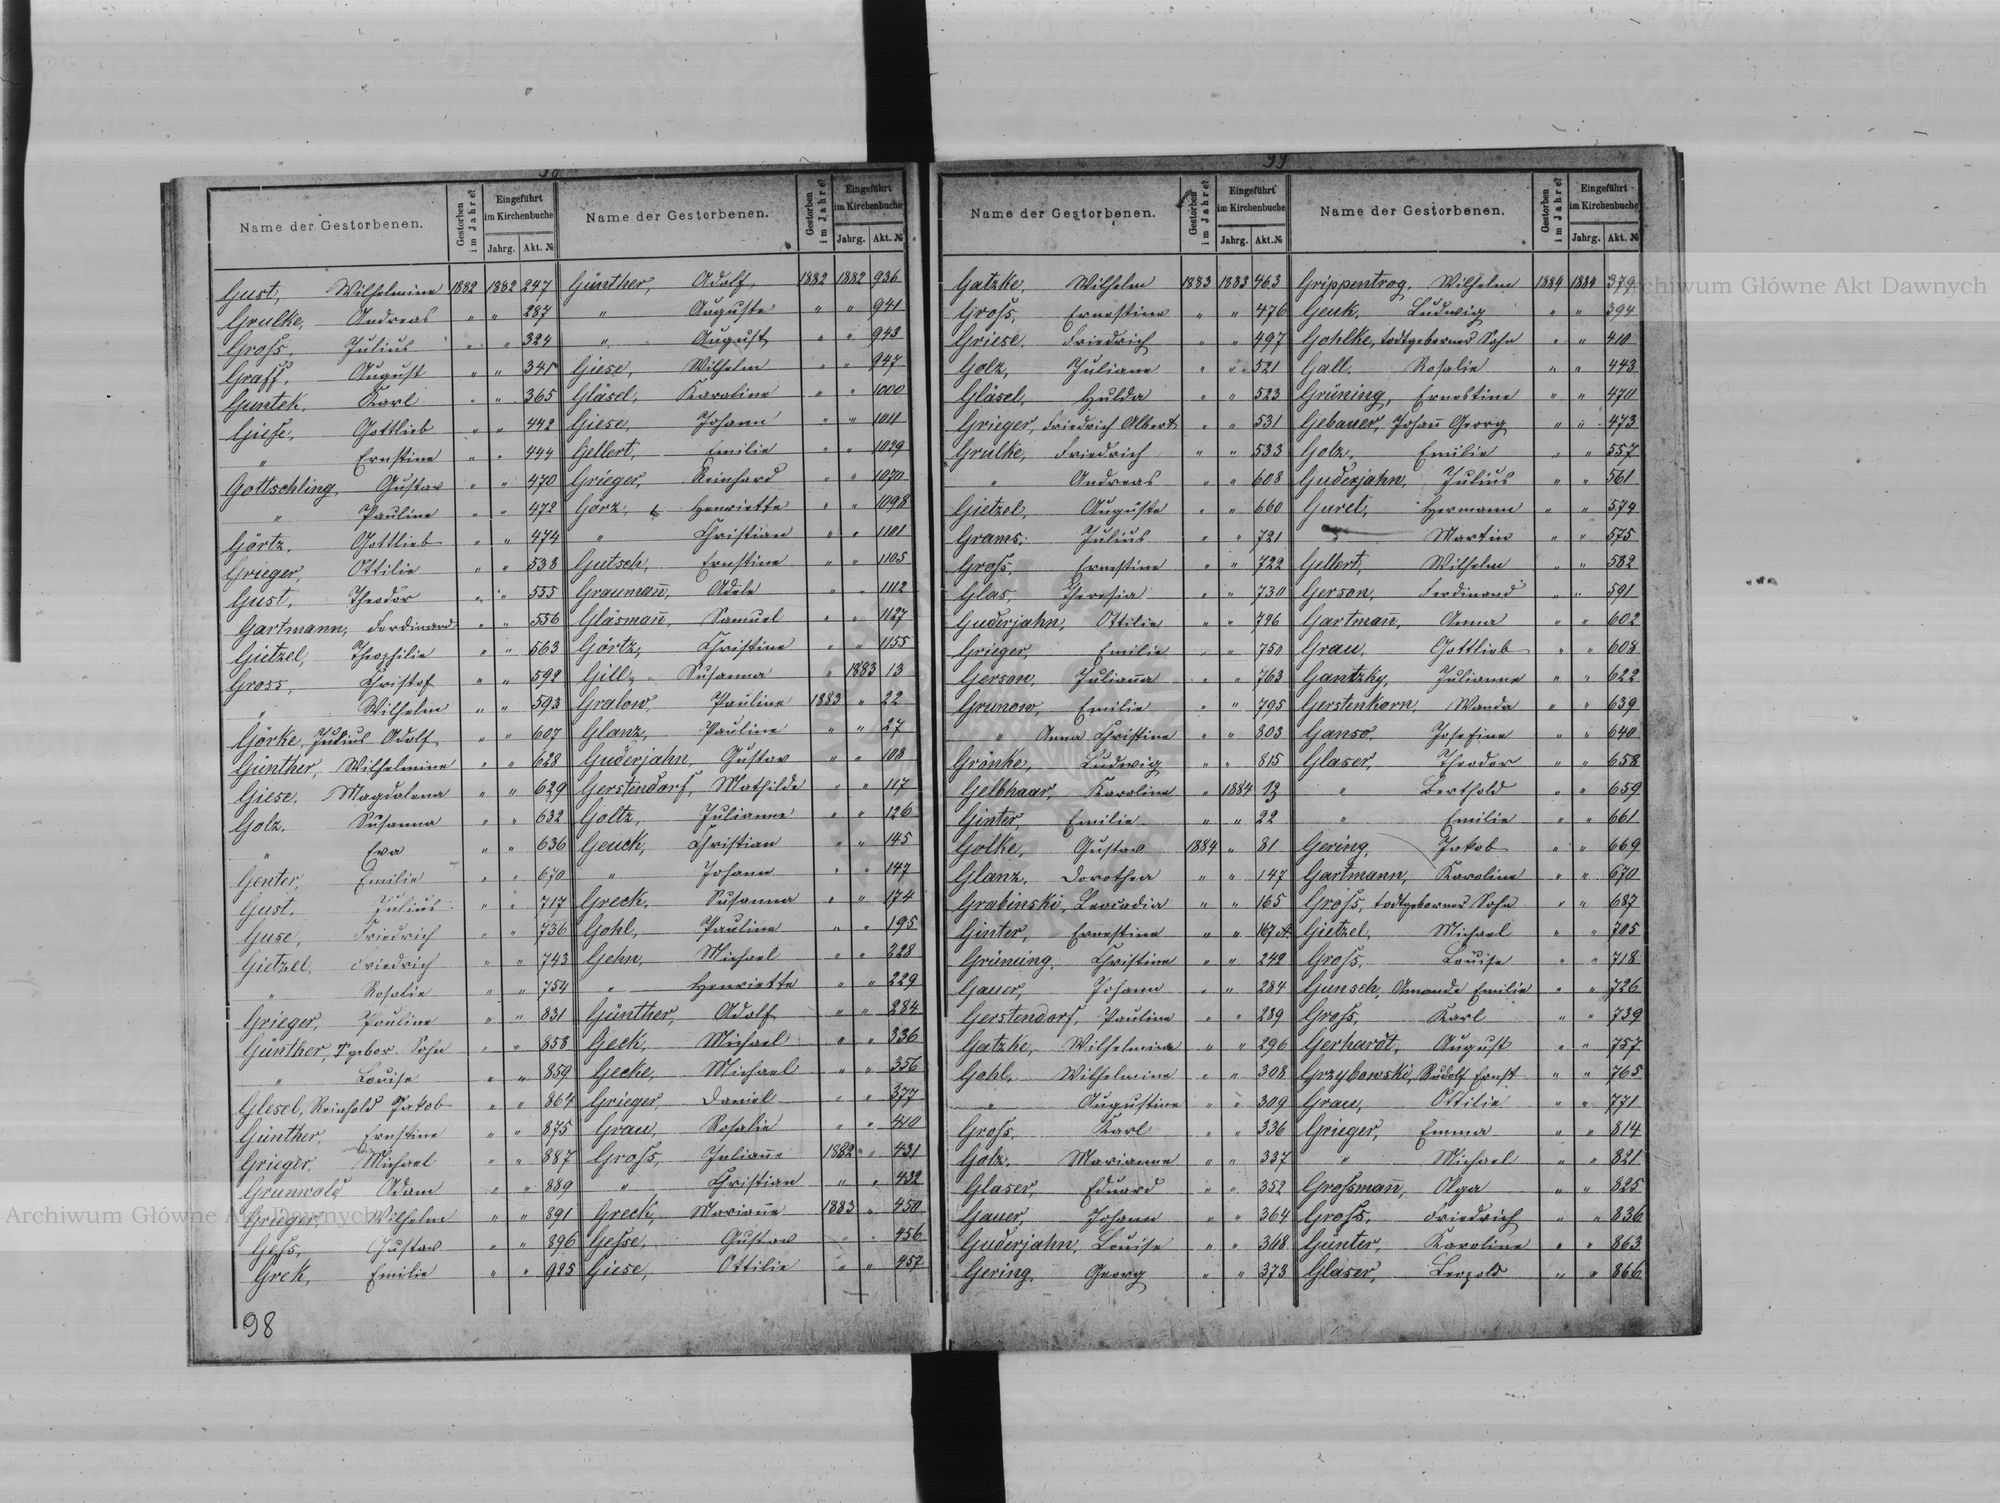 98
Name der Gestorbenen. Gestorben im Jahre? Eingeführt im Kirchenbuche Jahrg. Akt. №
Gust, Wilhelmine 1882 1882 247
Grulke, Andreas " " 287
Groſs, Julius " " 324
Graff, August " " 345
Guntek, Karl " " 365
Gieſe, Gottlieb " " 442
" Ernstine " " 444
Gottschling, Gustav " " 470
" Pauline " " 472
Görtz, Gottlieb " " 474
Grieger, Ottilie " " 538
Gust, Theodor " " 555
Gartmann, Ferdinand " " 556
Gietzel, Theophilie " " 563
Gross, Christof " " 592
" Wilhelm " " 593
Görke, Julius Adolf " " 607
Günther, Wilhelmine " " 628
Giese, Magdalena " " 629
Golz, Susanna " " 632
" Eva " " 636
Genter, Emilie " " 670
Gust, Julius " " 717
Guse, Friedrich " " 736
Gietzel, Friedrich " " 743
" Rosalie " " 754
Grieger, Pauline " " 831
Günther, T'gebor. Sohn " " 858
" Louise " " 859
Glesel, Reinhold Jakob " " 864
Günther, Ernstine " " 875
Grieger, Michael " " 887
Grunwald Adam " " 889
Grieger, Wilhelm " " 891
Geſs, Gustav " " 896
Grek, Emilie " " 925
98
Name der Gestorbenen. Gestorben im Jahre? Eingeführt im Kirchenbuche Jahrg. Akt. №
Günther, Adolf 1882 1882 936
" Auguste " " 941
" August " " 943
Giese, Wilhelm " " 947
Gläsel, Karoline " " 1000
Giese, Johann " " 1011
Gellert, Emilie " " 1029
Grieger, Reinhard " " 1070
Görz, Henriette " " 1098
" Christian " " 1101
Gutsch, Ernstine " " 1105
Graumañ, Adele " " 1112
Gläsmañ, Samuel " " 1127
Görtz, Christine " " 1155
Gill, Susanna " 1883 13
Gralow, Pauline 1883 " 22
Glanz, Pauline " " 27
Guderjahn, Gustav " " 108
Gerstendorf, Mathilde " " 117
Goltz, Julianne " " 126
Geuck, Christian " " 145
" Johann " " 147
Greck, Susanna " " 174
Gohl, Pauline " " 195
Gehn, Michael " " 228
" Henriette " " 229
Günther, Adolf " " 284
Geck, Michael " " 336
Gecke, Michael " " 356
Grieger, Daniel " " 377
Grau, Rosalie " " 410
Groſs, Juliañe 1882 " 431
" Christian " " 432
Greck, Mariañe 1883 " 450
Geſse, Gustav " " 456
Giese, Ottilie " " 457
99
Name der Gestorbenen. Gestorben im Jahre? Eingeführt im Kirchenbuche Jahrg. Akt. №
Gatzke, Wilhelm 1883 1883 463
Groſs, Ernestine " " 476
Griese, Friedrich " " 497
Golz, Juliane " " 521
Gläsel, Hulda " " 523
Grieger, Friedrich Albert " " 531
Grulke, Friedrich " " 533
" Andreas " " 608
Gietzel, Auguste " " 660
Grams, Julius " " 721
Groſs, Ernestine " " 722
Glas, Theresia " " 730
Guderjahn, Ottilie " " 746
Grieger, Emilie " " 750
Gerson, Juliañа " " 763
Grunow, Emilie " " 795
" Anna Christine " " 803
Grönke, Ludwig " " 815
Gelbhaar, Karoline " 1884 13
Ginter, Emilie " " 22
Golke, Gustav 1884 " 81
Glanz, Dorothea " " 147
Grabinski, Leocadia " " 165
Ginter, Ernestine " " 167 A.
Grüning, Christine " " 242
Gauer, Johann " " 284
Gerstendorf, Pauline " " 289
Gatzke, Wilhelmine " " 296
Gohl, Wilhelmine " " 308
" Augustine " " 309
Groſs, Karl " " 336
Golz, Marianne " " 337
Glaser, Eduard " " 352
Gauer, Johann " " 364
Guderjahn, Louise " " 368
Gering, Georg " " 373
Name der Gestorbenen. Gestorben im Jahre? Eingeführt im Kirchenbuche Jahrg. Akt. №
Grippentrog, Wilhelm 1884 1884 379
Geuk, Ludwig " " 394
Gohlke, todtgeborner Sohn " " 410
Gall, Rosalie " " 443
Grüning, Ernestine " " 470
Gebauer, Johañ Georg " " 473
Golz, Emilie " " 557
Guderjahn, Julius " " 561
Gurel, Hermann " " 574
" Martin " " 575
Gellert, Wilhelm " " 582
Gerson, Ferdinand " " 591
Gartmañ, Anna " " 602
Grau, Gottlieb " " 608
Gantzky, Julianne " " 622
Gerstenkorn, Wanda " " 639
Ganso, Josefine " " 640
Glaser, Theodor " " 658
" Berthold " " 659
" Emilie " " 661
Gering, Jakob " " 669
Gartmann, Karoline " " 670
Groſs, todtgeborner Sohn " " 687
Gietzel, Michael " " 705
Groſs, Louise " " 718
Gunsch, Amande Emilie " " 726
Groſs, Karl " " 739
Gerhardt, August " " 757
Grzybowski, Rudolf Ernst " " 765
Grau, Ottilie " " 771
Grieger, Emma " " 814
" Michael " " 821
Groſsmañ, Olga " " 825
Groſs, Friedrich " " 836
Günter, Karoline " " 863
Glaser, Leopold " " 866
Archiwum Główne Akt Dawnych
Archiwum Główne Akt Dawnych